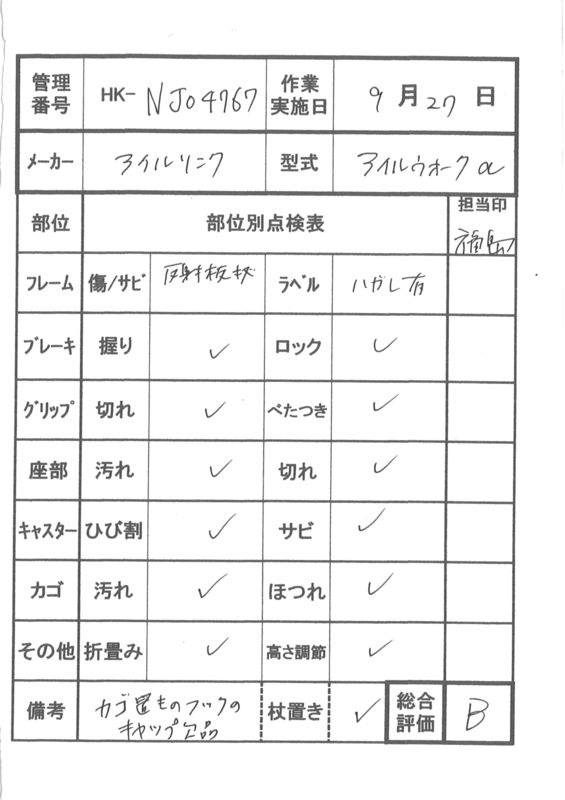 管理番号 HK- NJ04767 作業実施日 9月27日
メーカー アイルリンク 型式 アイルウオークα
部位 部位別点検表 担当印 福島
フレーム 傷/サビ 反射板 ラベル ハガし有
ブレーキ 握り ✓ ロック ✓
グリップ 切れ ✓ べたつき ✓
座部 汚れ ✓ 切れ ✓
キャスター ひび割 ✓ サビ ✓
カゴ 汚れ ✓ ほつれ ✓
その他 折畳み ✓ 高さ調節 ✓
備考 カゴ フックの 杖置き ✓ 総合評価 B
キャップ欠品